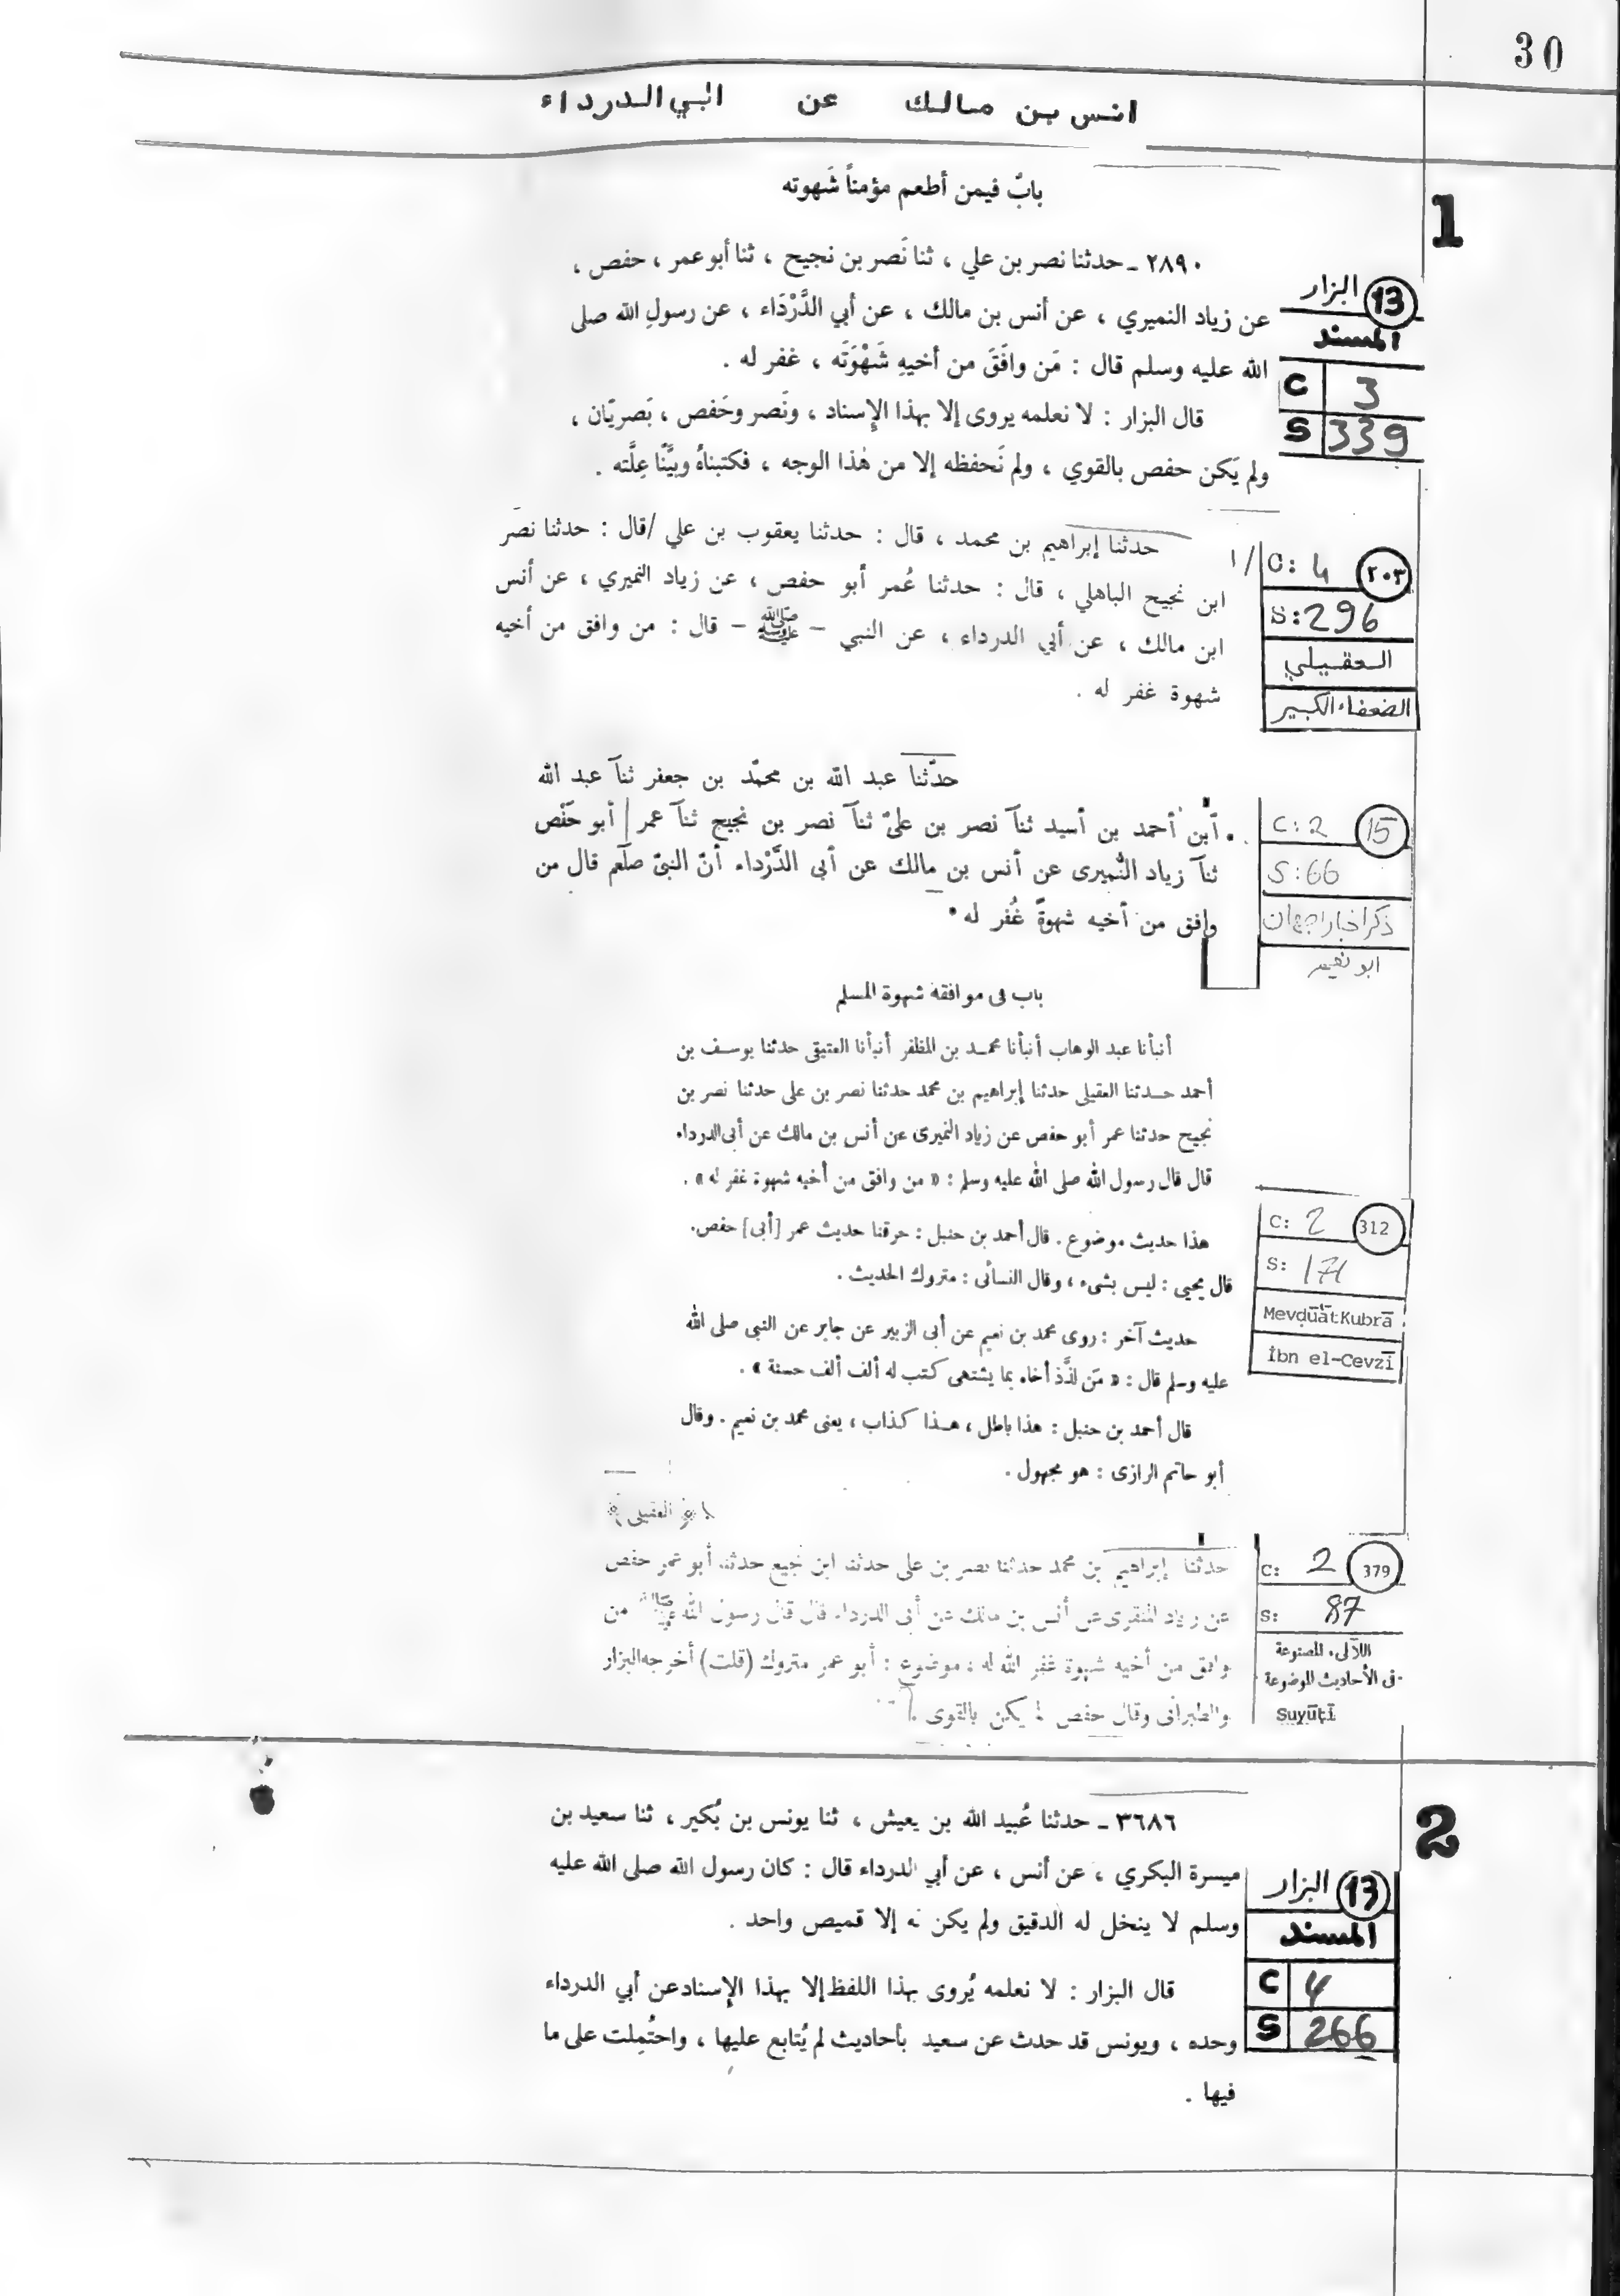 30
انس بن مالك عن ابي الدرداء
1
بابٌ فيمن أطعم مؤمناً شَهوته
٢٨٩٠ ـ حدثنا نصر بن علي ، ثنا نَصر بن نجيح ، ثنا أبو عمر ، حفص ،
عن زياد النميري ، عن أنس بن مالك ، عن أبي الدَّرْدَاء ، عن رسولِ الله صلى
الله عليه وسلم قال : مَن وافَقَ من أخيهِ شَهْوَتَه ، غفر له .
قال البزار : لا نعلمه يروى إلا بهذا الإِسناد ، ونَصر وحَفص ، بَصريّان ،
ولم يَكن حفص بالقوي ، ولم نَحفظه إلا من هٰذا الوجه ، فكتبناهُ وبيَّنَّا عِلَّته .
13 البزار
المسند
C 3
S 339
حدثنا إبراهيم بن محمد ، قال : حدثنا يعقوب بن علي /قال : حدثنا نصر
ابن نجيح الباهلي ، قال : حدثنا عُمر أبو حفص ، عن زياد النميري ، عن أنس
ابن مالك ، عن أبي الدرداء ، عن النبي – ﷺ – قال : من وافق من أخيه
شهوة غفر له .
١/
C: 4 ٢٠٣
S: 296
العقيلي
الضعفاء الكبير
حدّثنا عبد الله بن محمّد بن جعفر ثنآ عبد الله
أبن أحمد بن أسيد ثنآ نصر بن علىّ ثنآ نصر بن نجيح ثنآ عمر | أبو حَفْص
ثنآ زياد النُّميرى عن أنس بن مالك عن أبى الدَّرْداء أنّ النبىّ صلّعم قال من
وافق من أخيه شهوةً غُفر له •
C: 2 15
S: 66
ذكر اخبار اصبهان
ابو نعيم
باب فى موافقة شهوة المسلم
أنبأنا عبد الوهاب أنبأنا محمد بن المظفر أنبأنا العتيقى حدثنا يوسف بن
أحمد حدثنا العقيلى حدثنا إبراهيم بن محمد حدثنا نصر بن على حدثنا نصر بن
نجيح حدثنا عمر أبو حفص عن زياد النميرى عن أنس بن مالك عن أبى الدرداء
قال قال رسول الله صلى الله عليه وسلم : « من وافق من أخيه شهوة غفر له » .
هذا حديث موضوع . قال أحمد بن حنبل : حرقنا حديث عمر [أبى] حفص.
قال يحيى : ليس بشىء ، وقال النسائى : متروك الحديث .
حديث آخر : روى محمد بن نعيم عن أبى الزبير عن جابر عن النبى صلى الله
عليه وسلم قال : « مَن لذَّذ أخاه بما يشتهى كتب له ألف ألف حسنة » .
قال أحمد بن حنبل : هذا باطل ، هذا كذاب ، يعنى محمد بن نعيم . وقال
أبو حاتم الرازى : هو مجهول .
C: 2 312
S: 171
Mevḍūāt Kubrā
İbn el-Cevzī
(العقيلى)
حدثنا إبراهيم بن محمد حدثنا نصر بن على حدثنا ابن نجيح حدثنا أبو عمر حفص
عن زياد المنقرى عن أنس بن مالك عن أبى الدرداء قال قال رسول الله ﷺ من
وافق من أخيه شهوة غفر الله له : موضوع : أبو عمر متروك (قلت) أخرجه البزار
والطبرانى وقال حفص لم يكن بالقوى .
C: 2 379
S: 87
اللآلىء المصنوعة
فى الأحاديث الموضوعة
Suyūṭī
2
٣٦٨٦ ـ حدثنا عُبيد الله بن يعيش ، ثنا يونس بن بُكير ، ثنا سعيد بن
ميسرة البكري ، عن أنس ، عن أبي الدرداء قال : كان رسول الله صلى الله عليه
وسلم لا ينخل له الدقيق ولم يكن له إلا قميص واحد .
قال البزار : لا نعلمه يُروى بهذا اللفظ إلا بهذا الإِسناد عن أبي الدرداء
وحده ، ويونس قد حدث عن سعيد بأحاديث لم يُتابع عليها ، واحتُمِلت على ما
فيها .
13 البزار
المسند
C 4
S 266